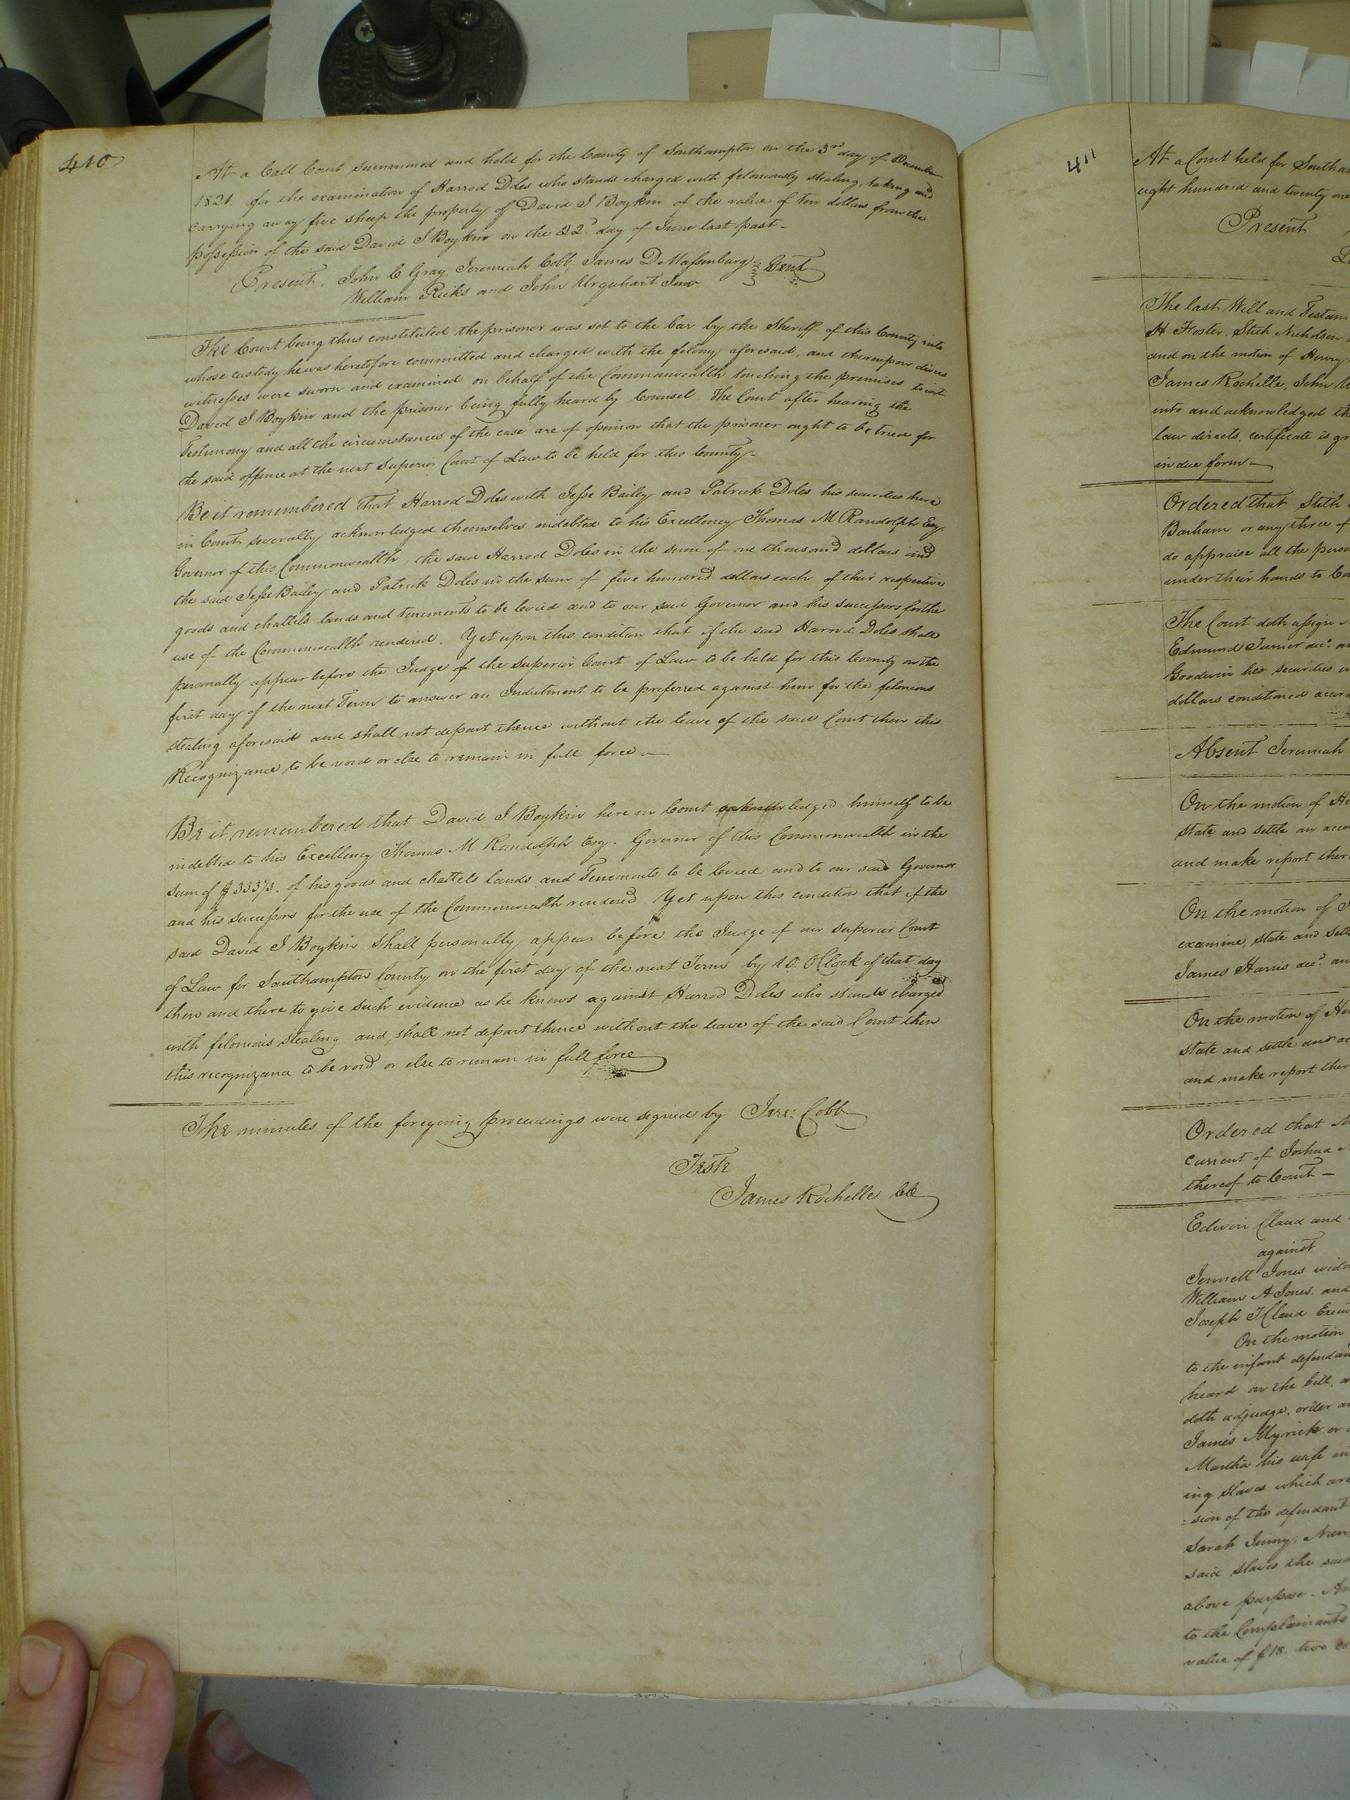 410
At a Call Court Summoned and held for the County of Southampton on the 3rd day of December
1821. for the examination of Harrod Doles who stands charged with feloniously stealing, taking and
carrying away five sheep the property of David J Boykin of the value of ten dollars from the
possession of the said David J Boykin on the 22d day of June last past.
Present. John C Gray, Jeremiah Cobb, James D Massenburg Gent
William Ricks and John Urquhart Junr
The Court being thus constituted the prisoner was set to the bar by the Sheriff of this County into
whose custody he was heretofore committed and charged with the felony aforesaid, and thereupon divers
witnesses were sworn and examined on behalf of the Commonwealth touching the premises to wit
David J Boykin and the prisoner being fully heard by Counsel The Court after hearing the
Testimony and all the circumstances of the case are of opinion that the prisoner ought to be tried for
the said offence at the next Superior Court of Law to be held for this County.
Be it remembered that Harrod Doles with Jesse Bailey and Patrick Doles his securities here
in Court severally acknowledged themselves indebted to his Excellency Thomas M Randolph Esq.
Governor of this Commonwealth, the said Harrod Doles in the sum of one thousand dollars and
the said Jesse Bailey and Patrick Doles in the sum of five hundred dollars each of their respective
goods and chattels lands and tenements to be levied and to our said Governor and his successors for the
use of the Commonwealth rendered. Yet upon this condition that if the said Harrod Doles shall
personally appear before the Judge of the Superior Court of Law to be held for this County on the
first day of the next Term to answer an Indictment to be preferred against him for the felonious
stealing aforesaid and shall not depart thence without the leave of the said Court then this
Recognizance to be void or else to remain in full force
Be it remembered that David J Boykin here in Court acknowledged himself to be
indebted to his Excellency Thomas M Randolph Esq. Governor of this Commonwealth in the
sum of $ of his goods and chattels lands and Tenements to be levied and to our said Governor
and his successors for the use of the Commonwealth rendered Yet upon this condition that if the
said David J Boykin shall personally appear before the Judge of our Superior Court
of Law for Southampton County on the first day of the next Term by 10 OClock of that day
then and there to give such evidence as he knows against Harrod Doles who stands charged
with felonious stealing and shall not depart thence without the leave of the said Court then
this recognizance to be void or else to remain in full force
The minutes of the foregoing proceedings were signed by Jere: Cobb
Teste
James Rochelle Clk
411
At a Court held for Southam
eight hundred and twenty one
Present
The last Will and Testam
H Foster, Sterling Nicholson
and on the motion of Henry
James Rochelle, John
into and acknowledged th
law directs, certificate is gr
in due form
Ordered that Stith
Barham or any three of
do appraise all the perso
under their hands to
The Court doth assign
Edmund Turner decd. an
Goodwin her securities
dollars conditioned accord
Absent Jeremiah
On the motion of
State and settle an acco
and make report ther
On the motion of
examine, state and sett
James Harris decd. an
On the motion of
State and settle an ac
and make report ther
Ordered that
current of Joshua
thereof to Court
Edwin Claud and
against
Jennett Jones wido
William A Jones and
Joseph T Claud
On the motion
to the infant defendan
heard on the bill, a
doth adjudge, order a
James Myrick or
Martha his wife
ing slaves which are
sion of the defendant
Sarah Jenny,
said slaves the
above purpose. An
to the Complainants
value of $18. two